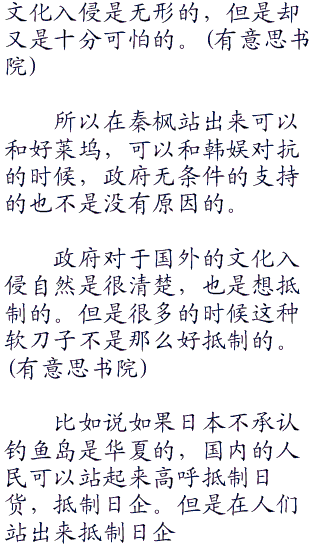 文化入侵是无形的，但是却
又是十分可怕的。(有意思书
院)
所以在秦枫站出来可以
和好莱坞，可以和韩娱对抗
的时候，政府无条件的支持
的也不是没有原因的。
政府对于国外的文化入
侵自然是很清楚，也是想抵
制的。但是很多的时候这种
软刀子不是那么好抵制的。
(有意思书院)
比如说如果日本不承认
钓鱼岛是华夏的，国内的人
民可以站起来高呼抵制日
货，抵制日企。但是在人们
站出来抵制日企